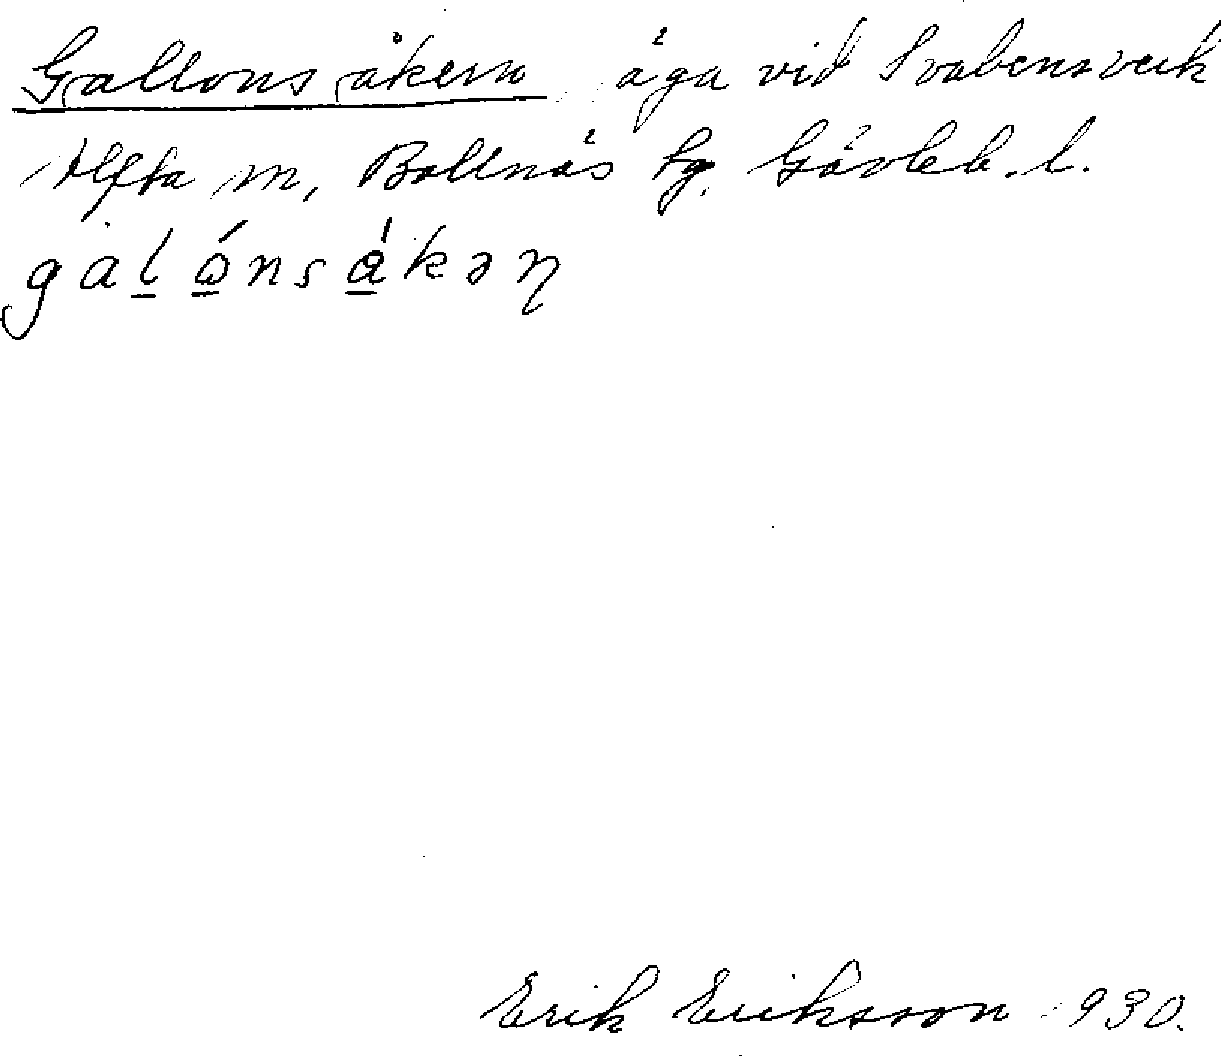 Gallonsåkern äga vid Svabensverk
Alfta sn, Bollnäs tg. Gävleb. l.
gal̲ó̲nsǻ̲kəη
Erik Eriksson 1930.